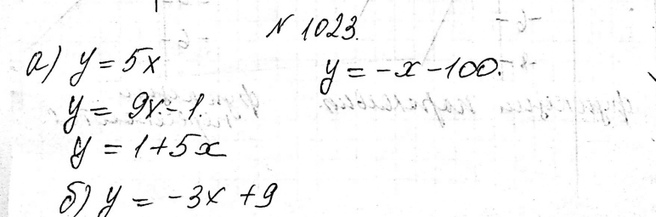 N 1023.
а) y = 5x
y = -x - 100.
y = 9x - 1.
y = 1 + 5x
б) y = -3x + 9